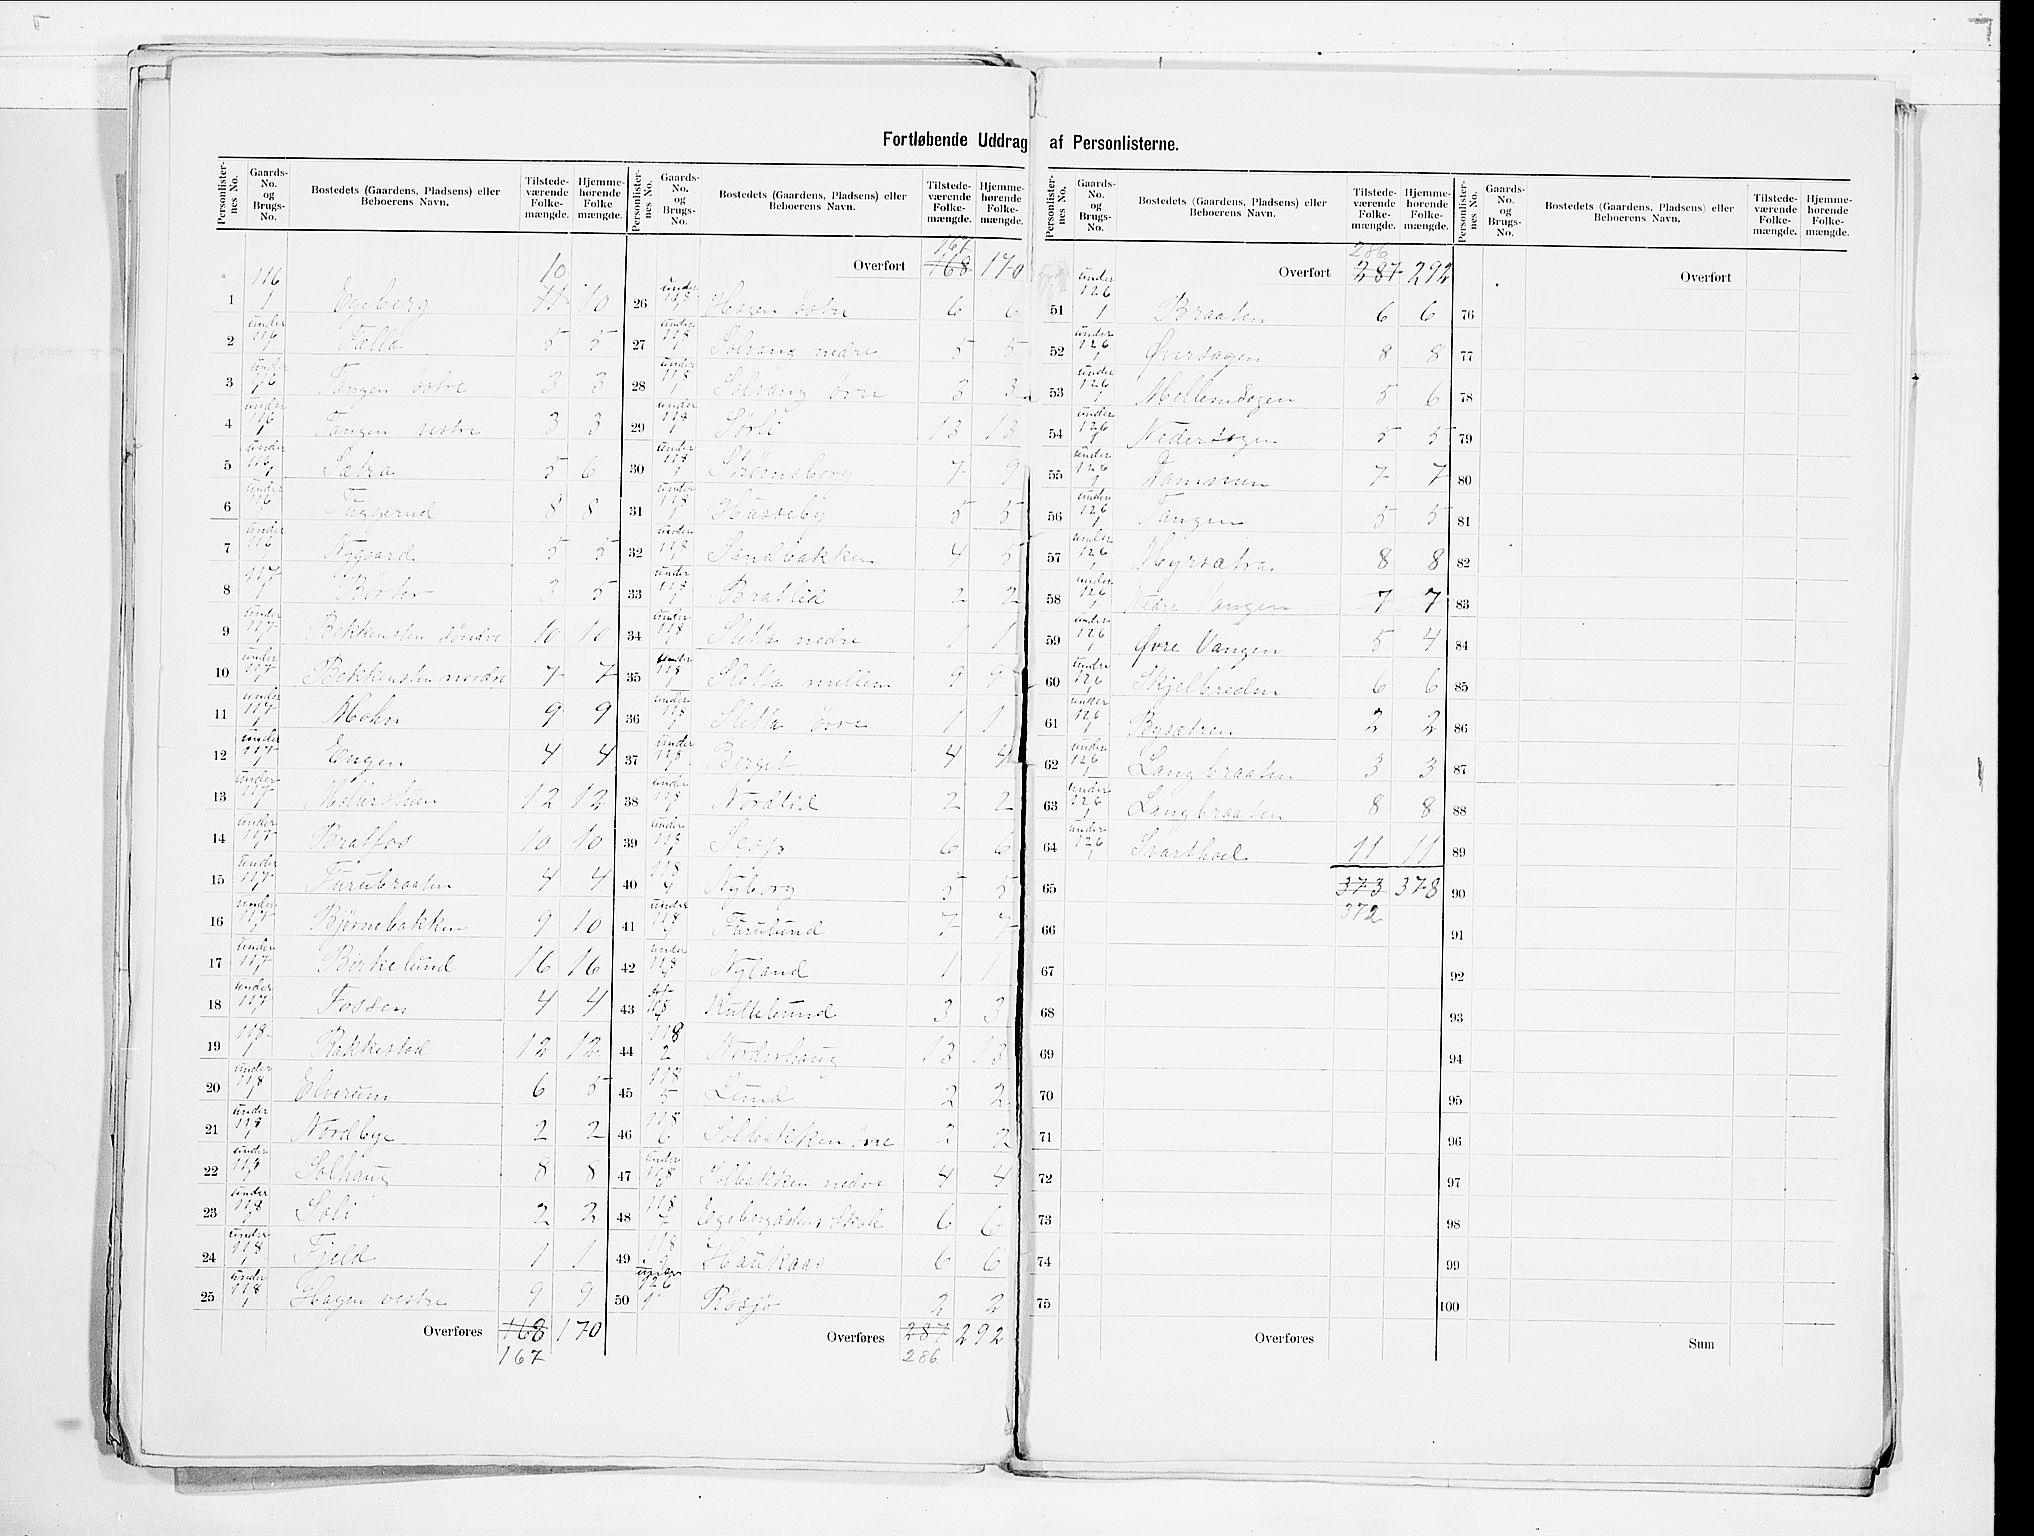 Fortløbende Uddrag af Personlisterne.
Personlisternes No. Gaards-No. og Brugs-No. Bostedets (Gaardens, Pladsens) eller Beboerens Navn. Tilstedeværende Folkemængde. Hjemmehørende Folkemængde.
1 116 1 Egeberg 11 10 10
2 under 116 1 Fælla 5 5
3 under 116 1 Tangen östre 3 3
4 under 116 1 Tangen vestre 3 3
5 under 116 1 Sætra 5 6
6 under 116 1 Tuggerud 8 8
7 under 116 Nygaard 5 5
8 117 1 Børter 3 5
9 under 117 1 Bekkensten söndre 10 10
10 under 117 Bekkensten nordre 7 7
11 under 117 1 Mohn 9 9
12 under 117 Engen 4 4
13 under 117 12 12
14 under 117 Bratfos 10 10
15 under 117 Furubraaten 4 4
16 under 117 Bjørnebakken 9 10
17 under 117 Birkelund 16 16
18 under 117 Fossen 4 4
19 118 1 Rakkestad 12 12
20 under 118 1 Elverum 6 5
21 under 118 1 Nordbye 2 2
22 under 118 1 Solhaug 8 8
23 under 118 1 Soli 2 2
24 under 118 1 Fjeld 1 1
25 under 118 1 Hagen vestre 9 9
Overføres 168 170
167
Personlisternes No. Gaards-No. og Brugs-No. Bostedets (Gaardens, Pladsens) eller Beboerens Navn. Tilstedeværende Folkemængde. Hjemmehørende Folkemængde.
167
Overført 168 170
26 under 118 1 Hagen östre 6 6
27 under 118 1 Solvang nedre 5 5
28 under 118 1 Solvang øvre 3 3
29 under 118 1 Sørli 13 13
30 under 118 1 Skørnsborg 7 9
31 under 118 1 Husseby 5 5
32 under 118 1 Sandbakken 4 5
33 under 118 1 Bratlid 2 2
34 under 118 1 Sletta nedre 1 1
35 under 118 1 Sletta mellem 9 9
36 under 118 1 Sletta övre 1 1
37 under 118 1 Berget 4 4
38 under 118 1 Nordlid 2 2
39 under 118 1 6 6
40 118 4 Nyborg 5 5
41 under 118 4 Furulund 7 7
42 under 118 4 Nyland 1 1
43 118 4 Kullebund 3 3
44 118 2 Norderhaug 13 13
45 118 5 Lund 2 2
46 118 6 Solbakken øvre 2 2
47 under 118 6 Solbakken nedre 4 4
48 118 7 Egebergdalens Skole 6 6
49 118 9 Haukaas 6 6
50 under 126 1 Røsjø 2 2
Overføres 287 292
286
Personlisternes No. Gaards-No. og Brugs-No. Bostedets (Gaardens, Pladsens) eller Beboerens Navn. Tilstedeværende Folkemængde. Hjemmehørende Folkemængde.
286
Overført 287 292
51 under 126 1 Braaten 6 6
52 under 126 1 Øversagen 8 8
53 under 126 1 Mellemsagen 5 6
54 under 126 1 Nedersagen 5 5
55 under 126 1 Dammen 7 7
56 under 126 1 Tangen 5 5
57 under 126 1 Myrsætra 8 8
58 under 126 1 Nedre Vangen 7 7
59 under 126 1 Øvre Vangen 5 4
60 under 126 1 Skjelbreden 6 6
61 under 126 1 Bysætren 2 2
62 under 126 1 Langbraaten 3 3
63 under 126 1 Langbraaten 8 8
64 under 126 1 Svarthoel 11 11
65 373 378
372
66
67
68
69
70
71
72
73
74
75
Overføres
Personlisternes No. Gaards-No. og Brugs-No. Bostedets (Gaardens, Pladsens) eller Beboerens Navn. Tilstedeværende Folkemængde. Hjemmehørende Folkemængde.
Overført
76
77
78
79
80
81
82
83
84
85
86
87
88
89
90
91
92
93
94
95
96
97
98
99
100
Sum